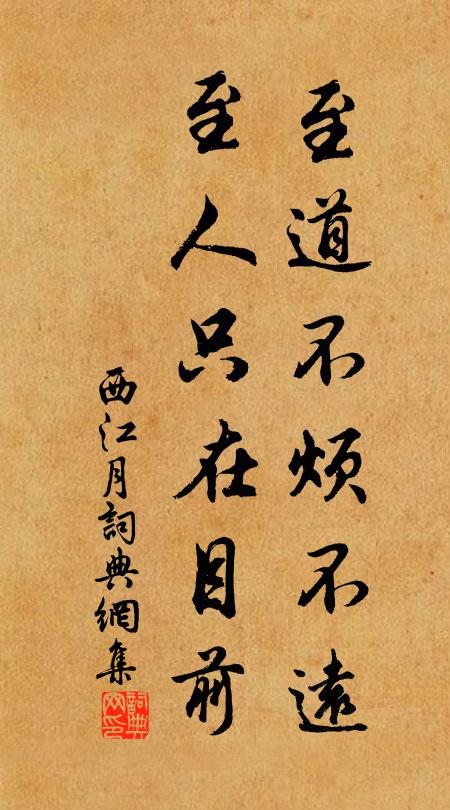 至道不煩不遠
至人只在目前
西江月詞典網集
詞典
网印